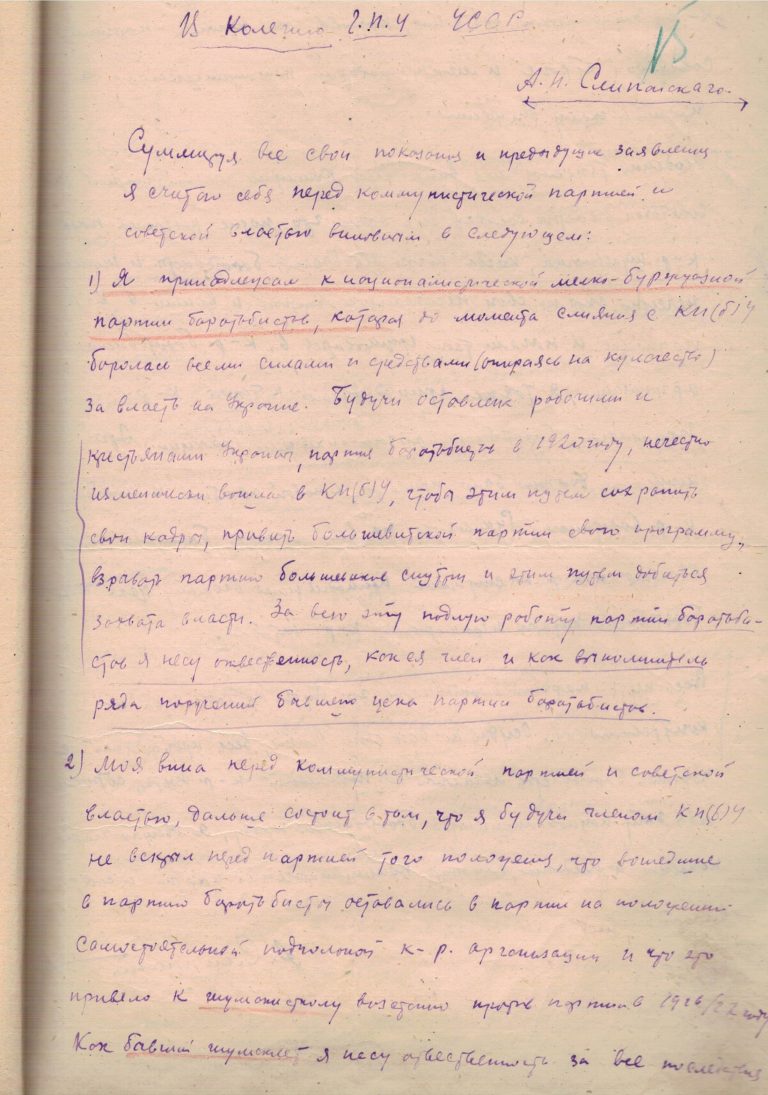 В Колегию Г.П.У УССР
А. П. Слипанскаго.
Суммируя все свои показания и предыдущие заявления
я считаю себя перед коммунистической партией и
советской властью виновным в следующем:
1) Я принадлежал к националистической мелко-буржуазной
партии боротьбистов, которая до момента слияния с КП(б)У
боролась всеми силами и средствами (опираясь на кулачество)
за власть на Украине. Будучи оставлена рабочими и
крестьянами Украины, партия боротьбистов в 1920 году, нечестно
изменически вошла в КП(б)У, чтобы этим путем сохранить
свои кадры, привить большевитской партии свою программу,
взравать партию большевиков снутри и этим путем добиться
захвата власти. За всю эту подлую работу партии боротьби-
стов я несу ответственность, как ея член и как выполнитель
ряда поручений бывшего цека партии боротьбистов.
2) Моя вина перед коммунистической партией и советской
властью, дальше состоит в том, что я будучи членом КП(б)У
не вскрыл перед партией того положения, что вошедшие
в партию боротьбисты оставались в партии на положении
самостоятельной подпольной к-р. организации и что это
привело к шумскистскому возстанию против партии в 1926/27 году
Как бывший шумскист я несу ответственность за все последствия